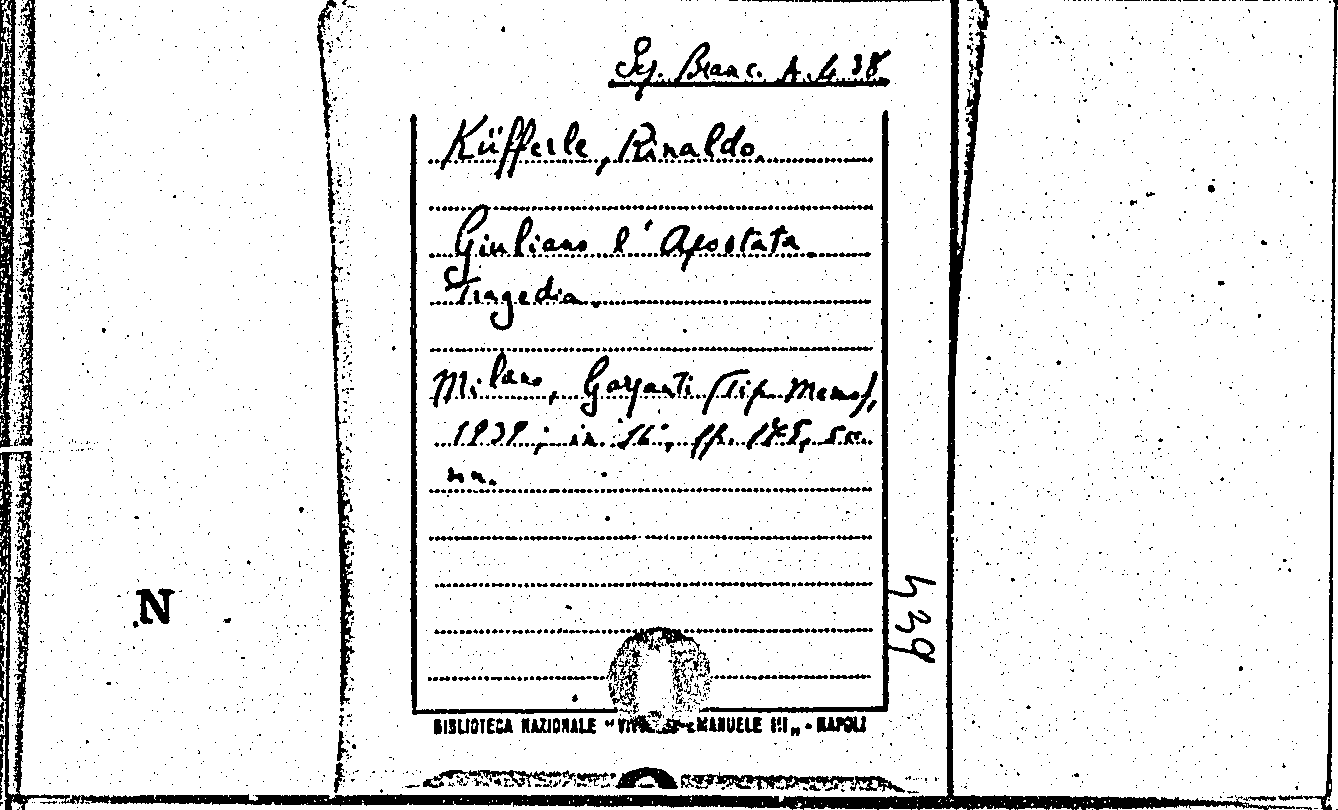 Sez. Branc. A. 4. 38
Küfferle, Rinaldo.
Giuliano l'Apostata.
Tragedia.
Milano, Garzanti (Tip.
1939; in 16°, pp.
nn.
439
N
BIBLIOTECA NAZIONALE EMANUELE III„ - NAPOLI